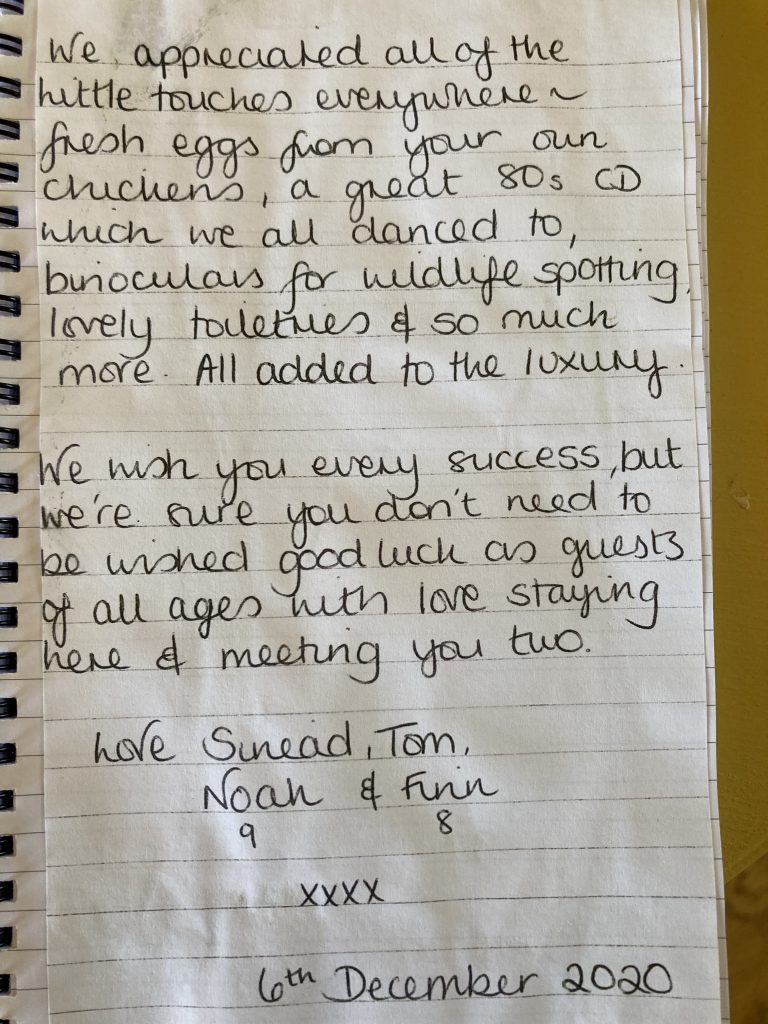 We appreciated all of the
little touches everywhere ~
fresh eggs from your own
chickens, a great 80s CD
which we all danced to,
binoculars for wildlife spotting,
lovely toiletries & so much
more. All added to the luxury.
We wish you every success, but
we're sure you don't need to
be wished good luck as guests
of all ages with love staying
here & meeting you two.
Love Sinead, Tom,
Noah & Finn
9 8
xxxx
6th December 2020